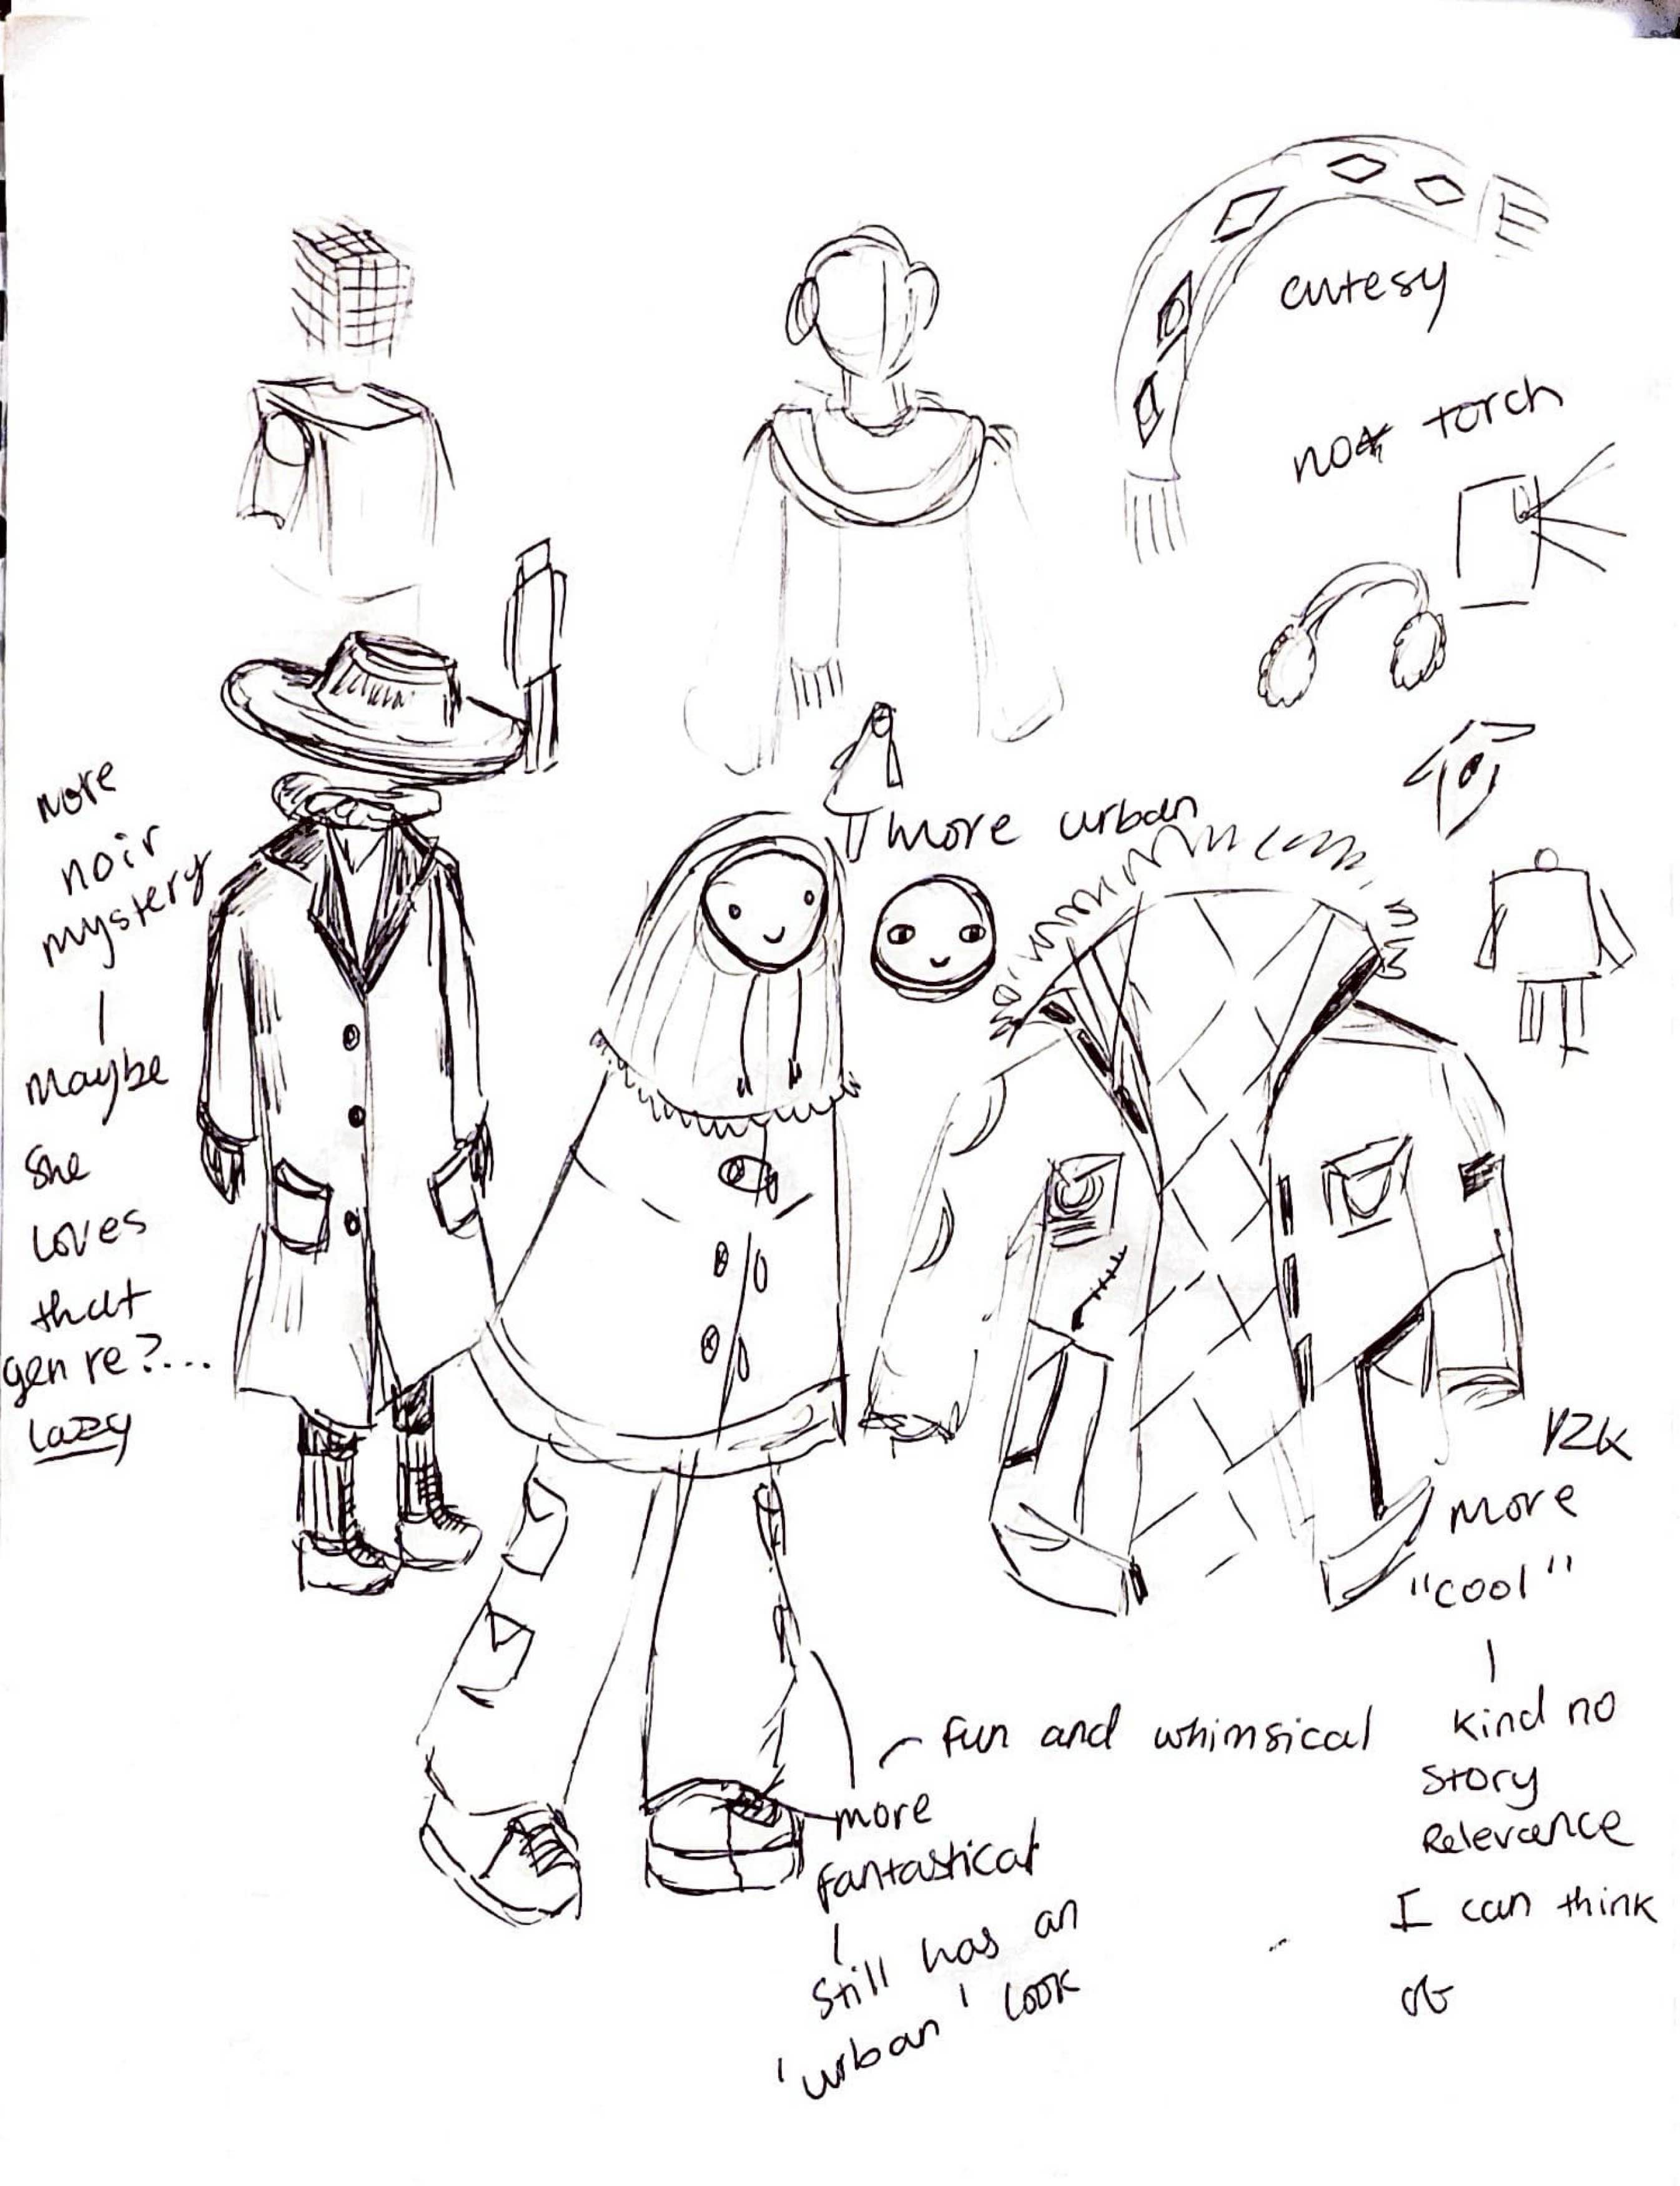 cutesy
torch
more urban
more
noir
mystery
Maybe
She
Loves
that
genre?...
Lazy
More
"cool"
kind no
Story
Relevance
I can think
of
fun and whimsical
more
fantastical
Still has an
'urban' look